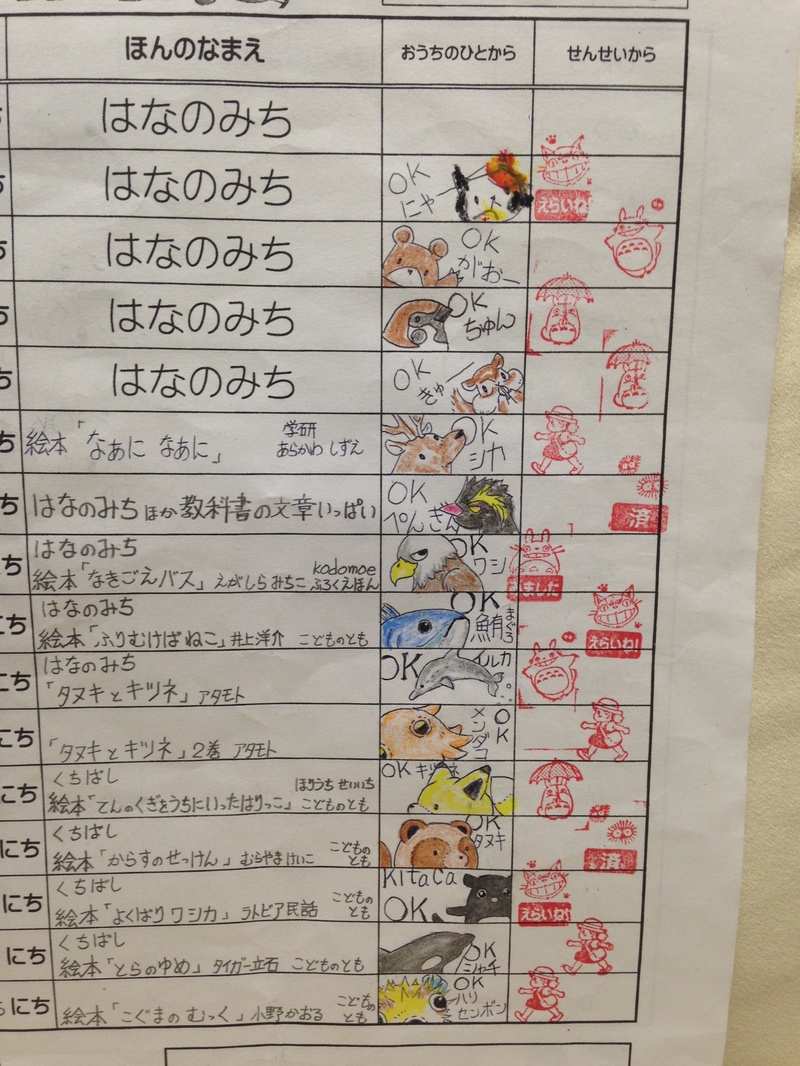 ほんのなまえ おうちのひとから せんせいから
はなのみち
はなのみち OK にゃ えらいね
はなのみち OK がおー
はなのみち OK ちゅん
はなのみち OK きゅ
ち 絵本「なあに なあに」 学研 あらかわ しずえ OK シカ
ち はなのみち ほか 教科書の文章いっぱい OK ぺんぎん 済
ち はなのみち
絵本「なきごえバス」 えがしら みちこ kodomoe ふろくえほん OK ワシ ました
にち はなのみち
絵本「ふりむけばねこ」 井上洋介 こどものとも OK 鮪 まぐろ えらいね!
にち はなのみち
「タヌキとキツネ」 アタモト OK イルカ
にち 「タヌキとキツネ」2巻 アタモト OK メンダコ
にち くちばし
絵本「てんのくぎをうちにいったはりっこ」 ほりうち せいいち こどものとも OK キツネ
にち くちばし
絵本「からすのせっけん」 むらやまけいこ こどものとも OK タヌキ 済
にち くちばし
絵本「よくばり ワシカ」 ラトビア民話 こどものとも Kitaca OK えらいね!
にち くちばし
絵本「とらのゆめ」 タイガー立石 こどものとも OK シャチ
にち 絵本「こぐまの むっく」 小野かおる こどものとも OK ハリセンボン